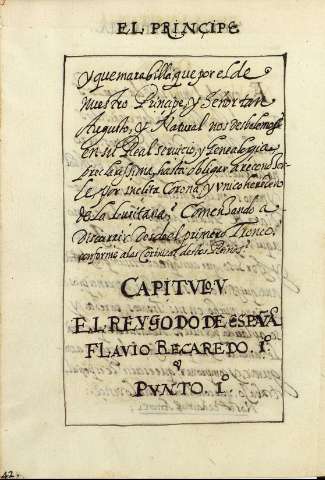 EL PRINCIPE
Y que marabilla que por el de
Nuestro Principe, y Señor tan
Augusto, y Natural nos desbelemos
en su Real servicio, y Genealogia
Preclarissima, hasta obligar a reconoserle
por inclita Corona, y unico heredero
de la Lusitana, Comensando a
Discurrir desde el primero Tronco,
conforme a las Coronicas destos Reinos.
CAPITULO. V.
EL REY GODO DE ESPAÑA
FLAVIO RECAREDO. Iº
y
PUNTO. Iº
42